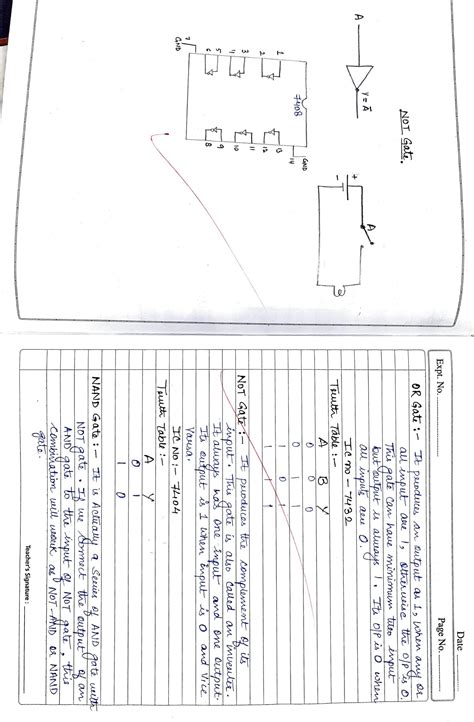 NOT Gate.
A
Y = Ā
A
+
-
7408
1
2
3
4
5
6
7
GND
14
GND
13
12
11
10
9
8
Expt. No.
Date
Page No.
OR Gate :- It produces an output as 1, when any or
all input are 1, otherwise the o/p is 0.
This gate can have minimum two input
but output is always 1. It O/P is 0 when
all inputs are 0.
IC no - 7432
Truth Table :-
A B Y
0 0 0
0 1 1
1 0 1
1 1 1
NOT Gate :- It produces the complement of its
input. This gate is also called an inverter.
It always has one input and one output.
Its output is 1 when input is 0 and Vice
Varsa.
IC No :- 7404
Truth Table :-
A Y
0 1
1 0
NAND Gate :- It is Actually a Series of AND gate with
NOT gate. If we connect the output of an
AND gate to the input of NOT gate, this
combination will work as NOT-AND or NAND
gate.
Teacher's Signature :